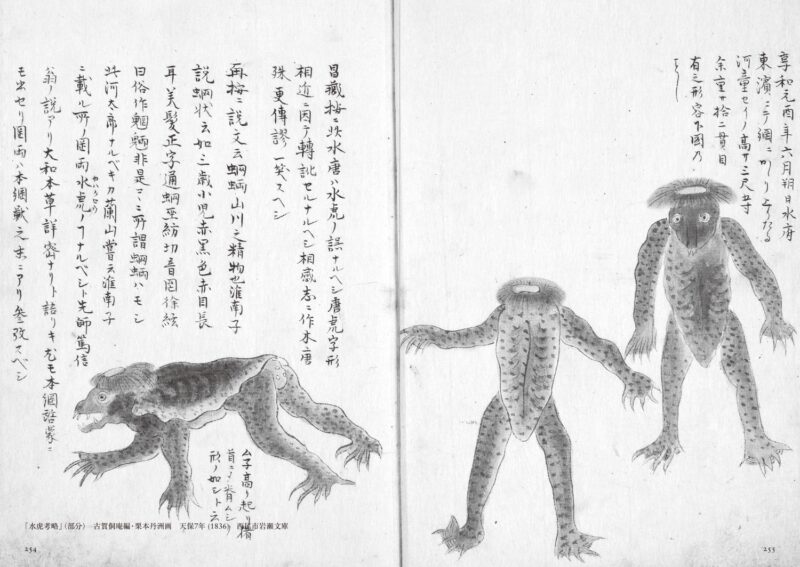 享和元酉年六月朔日水府
東濱ニテ網ニカヽリ上リタル
河童セイノ高サ三尺五寸
余重サ拾二貫目
有之形容下図ノ
昌臧按ニ此水唐ハ水虎ノ誤ナルヘシ唐虎字形
相近ニ因テ轉訛セルナルヘシ相感志ニ作水唐
殊更傳謬一笑スヘシ
再按ニ説文云蝄蜽山川之精物也淮南子
説蝄状云如三歳小児赤黒色赤目長
耳美髪正字通蝄巫紡切音罔徐鉉
曰俗作魍魎非是コヽニ所謂蝄蜽ハモシ
此河太郎ナルベキカ蘭山嘗云淮南子
ニ載ル所ノ罔両水虎ノコナルベシト先師篤信
翁ノ説アリ大和本草詳審ナリト語リキ尤モ本綱啓蒙ニ
モ出セリ罔両ハ本綱獣之末ニアリ参攷スベシ
「水虎考略」(部分)―古賀侗庵編・栗本丹洲画　天保7年(1836)　西尾市岩瀬文庫
254
255